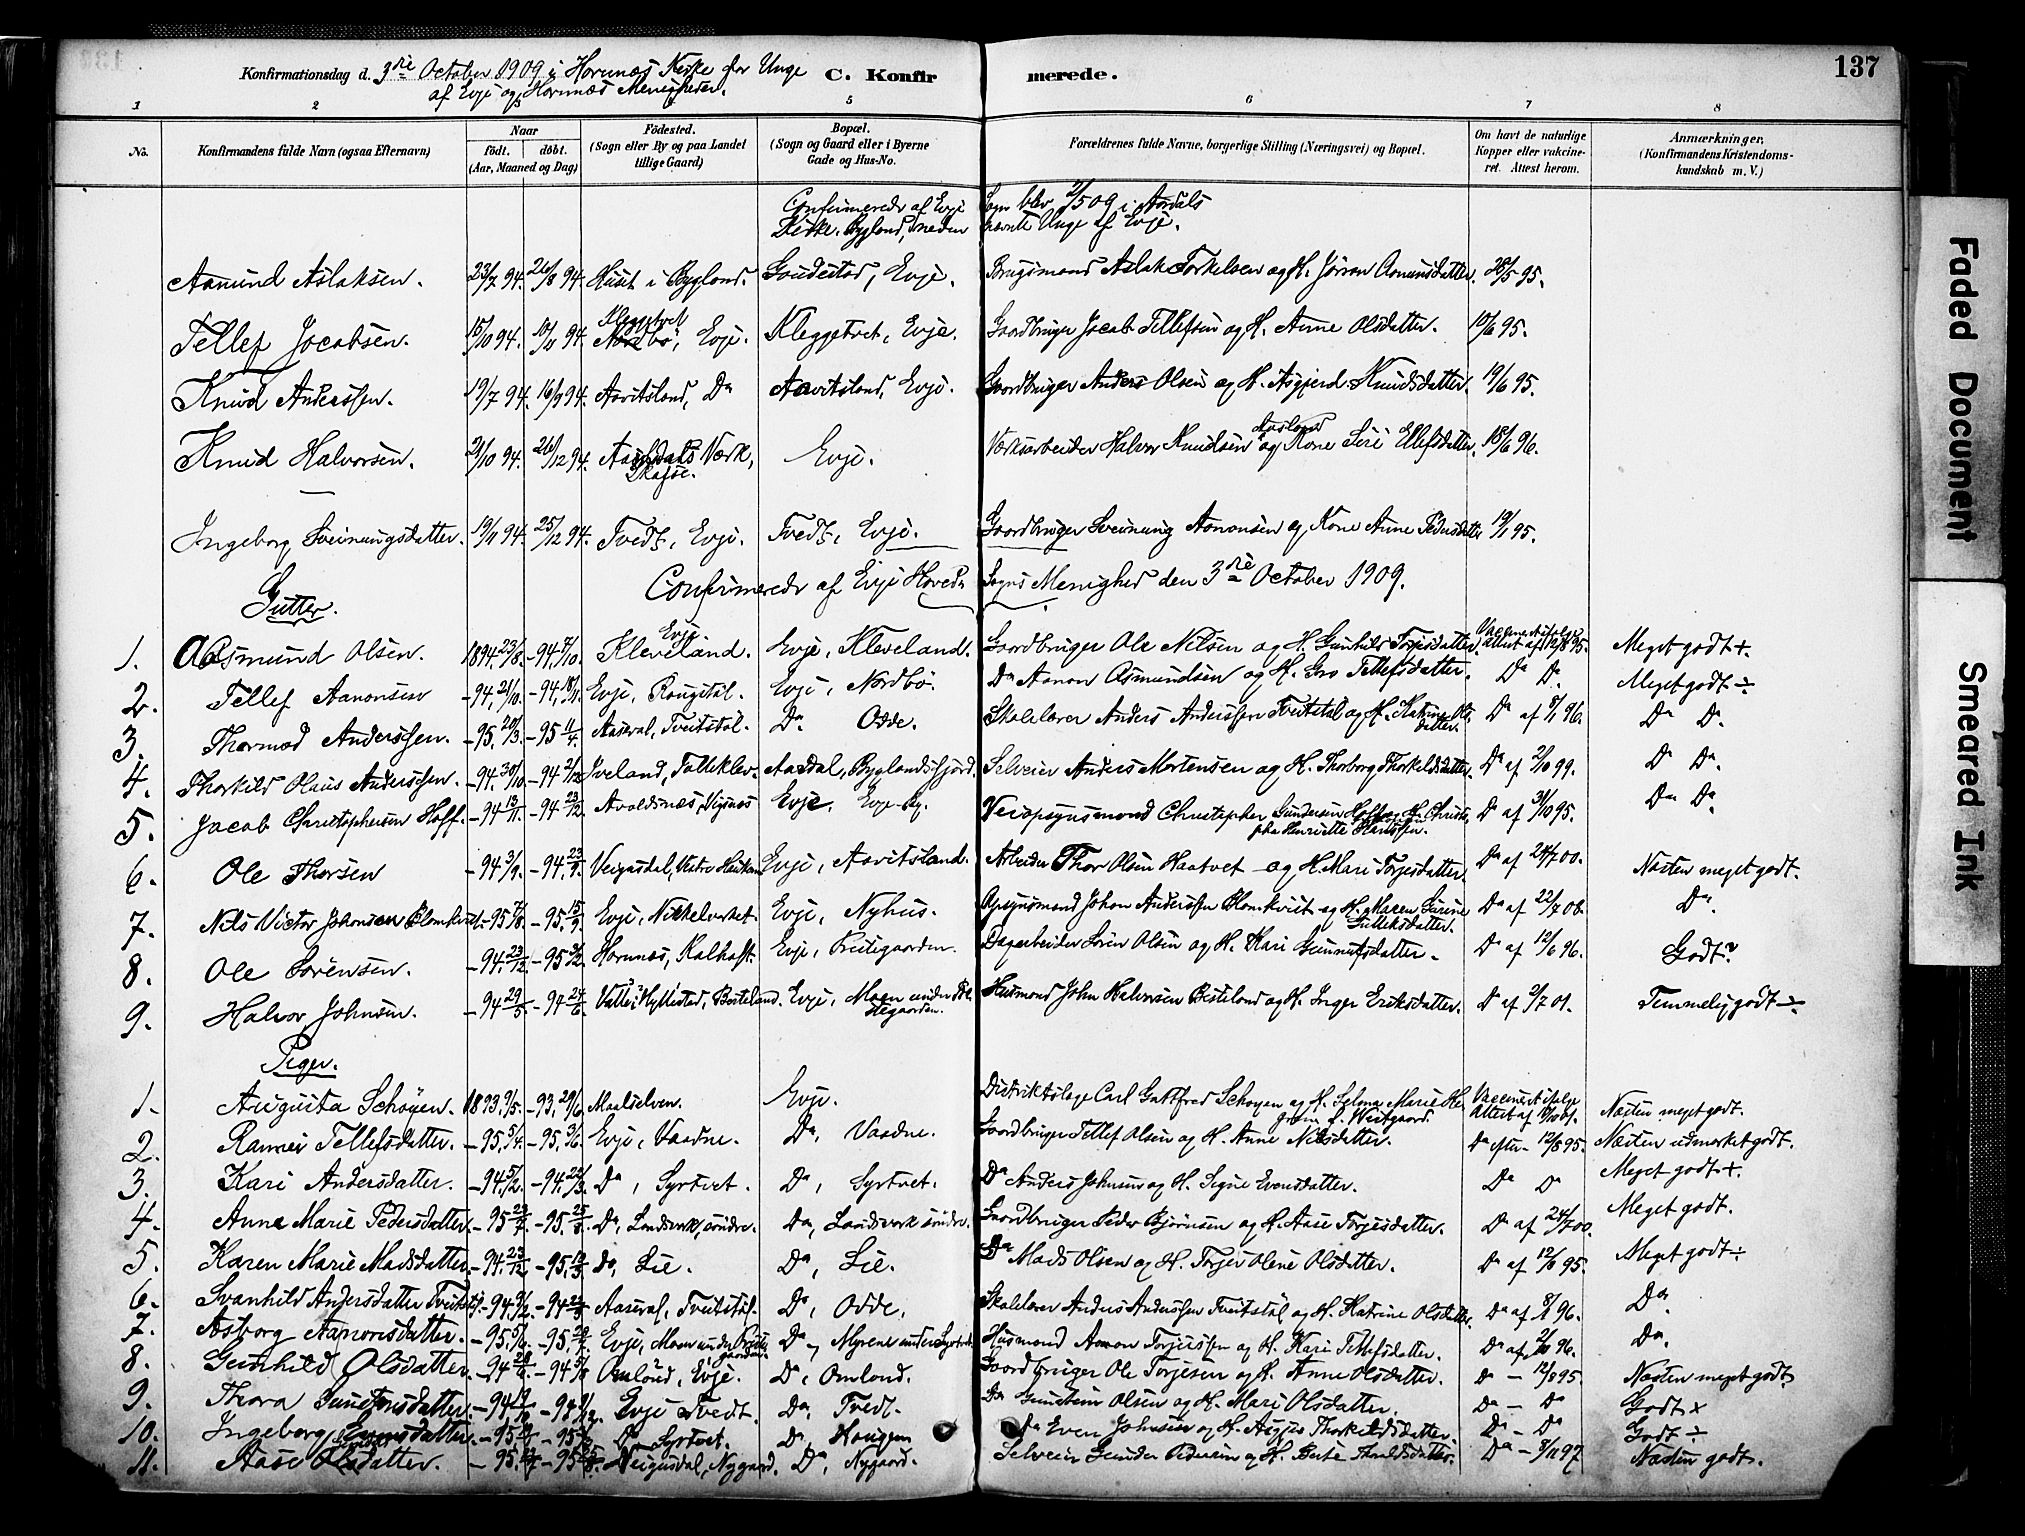 137
Konfirmationsdag d. 3die October 1909 i Hornnæs Kirke for Unge C. Konfir merede.
af Evje og Hornnæs Menigheder.
1 2 5 6 7 8
No. Konfirmandens fulde Navn (ogsaa Efternavn) Naar födt. döbt. (Aar, Maaned og Dag) Födested. (Sogn eller By og paa Landet tillige Gaard) Bopæl. (Sogn og Gaard eller i Byerne Gade og Hus-No. Forældrenes fulde Navne, borgerlige Stilling (Næringsvei) og Bopæl. Om havt de naturlige Kopper eller vakcineret. Attest herom. Anmærkninger, (Konfirmandens Kristendomskundskab m. V.)
Confirmerede af Evje Sogn blev 2/5 09 i Aardals
Kirke, Bygland, neden nævnte Unge af Evje.
Aamund Aslaksen. 23/7 94. 26/8 94. Huset i Bygland. Evje. Brugsmand Aslak Torkelsen og H. Jörron Aamunsdatter. 28/5 95.
Tellef Jacobsen. 15/10 94. 10/11 94. Kleggetvet Nordbö, Evje. Kleggetvet, Evje. Gaardbruger Jacob Tellefsen og H. Anne Olsdatter. 10/6 95.
Knud Anderssen. 19/7 94. 16/9 94. Aavitsland, Do Aavitsland, Evje. Gaardbruger Anders Olsen og H. Asgjerd Knudsdatter. 19/6 95.
Knud Halvorsen. 21/10 94. 26/12 94. Værk, Skafse. Evje. Værksarbeider Halvor Knudsen Aasland og Kone Siri Ellefsdatter. 18/6 96.
Ingeborg Sveinungsdatter. 19/11 94. 25/12 94. Tvedt, Evje. Tvedt, Evje. Gaardbruger Sveinung Aanonsen og Kone Anne Pedersdatter 19/6 95.
Confirmerede af Evje Hoved- Sogns Menighed den 3die October 1909.
Gutter.
1. Aasmund Olsen. 1894 23/8. -94. 7/10. Evje Kleveland. Evje, Kleveland. Gaardbruger Ole Nilsen og H. Gunhild Torjusdatter. Vaccineret ifølge Attest af 12/8 95. Meget godt +.
2. Tellef Aanonsen -94. 21/10. -94. 18/11. Evje, Rougstøl. Evje, Nordbö. Do Aanon Asmundsen og H. Gro Tellefsdatter. Do Do Meget godt ÷
3. Thormod Anderssen. -95. 20/3. -95 11/4. Aaseral, Tveitstöl. Do Odde. Skolelærer Anders Anderssen Tveitstöl og H. Katrine Olsdatter. Do af 8/1 96. Do Do.
4. Thorkild Olaus Anderssen. -94. 30/10 -94 2/12 Iveland, Tolleklev. Aardal, Byglandsfjord. Selveier Anders Mortensen og H. Thorborg Thorkildsdatter. Do af 2/10 99. Do Do.
5. Jacob Christophersen Hoff. -94 13/11. -94 23/12. Avaldsnæs, Vigsnæs Evje, Evje By. Veiopsynsmand Christopher Gundersen Hoff og H. Henriette Do af 31/10 95. Do Do.
6. Ole Thorsen -94 3/9. -94. 23/9. Veigusdal, Evje, Aavitsland. Arbeider Thor Olsen Haatvet og H. Mari Torjusdatter. Do af 24/7 00. Næsten meget godt.
7. Nils Victor Johansen Blomkvist. -95 7/8. -95. 15/9. Evje, Nikkelverket. Evje, Nyhus. Opsynsmand Johan Anderssen Blomkvist og H. Maren Sullieksdatter. Do af 22/7 08. Do.
8. Ole Sörensen. -94. 23/12. -95 3/2. Hornnæs, Kalhoft. Evje, Prestegaarden. Dagarbeider Sören Olsen og H. Kari Gunnufsdatter. Do af 12/6 96. Godt?
9. Halvor Johnsen. -94 29/5. -94 24/6. Valle, Hyllestad, Evje, Moen under Prestegaarden. Husmand John Halvorsen og H. Inger Eriksdatter. Do af 2/7 01. Temmelig godt ÷.
Piger.
1. Augusta Schöyen. 1893. 9/5. -93. 29/6. Maalselven. Evje. Distriktslæge Carl Gottfred Schöyen og H. Selma Marie Westgaard. Vaccineret ifølge Attest af 10/10 01. Næsten meget godt.
2. Ranvei Tellefsdatter. -95. 5/4. -95. 3/6. Evje, Vaadne. Do, Vaadne. Gaardbruger Tellef Olsen og H. Anne Nilsdatter. Do efter 12/8 95. Næsten udmerket godt.
3. Kari Andersdatter. -94 5/2. -94. 22/3. Do, Syrtvet. Do, Syrtvet. Do Anders Johnsen og H. Signe Evensdatter. Do Do Meget godt +.
4. Anne Marie Pedersdatter. -95 22/7. -95. 25/8. Do, Landsverk, söndre. Do, Landsverk söndre. Gaardbruger Peder Björnsen og H. Aase Torjusdatter. Do af 24/7 00. Meget godt.
5. Karen Marie Madsdatter. -94. 23/12. -95. 12/3. Do, Lie. Do, Lie. Do Mads Olsen og H. Torjer Olene Olsdatter. Do af 12/8 95. Meget godt ÷
6. Svanhild Andersdatter Tveitstöl. Aaseral, Tveitstöl. Do, Odde. Skolelærer Anders Anderssen Tveitstöl og H. Katrine Olsdatter. Do af 8/1 96. Do.
7. Asborg Aanonsdatter. Evje, Moen under Prestegaarden Do, Myrene under Syrtvet. Husmand Aanon Torjussen og H. Kari Tellefsdatter. Do af Do.
8. Gunhild Olsdatter. Omlönd, Evje. Do, Omlond. Gaardbruger Ole Torjesen og H. Anne Olsdatter. Do - 12/8 95. Næsten meget godt.
9. Thora Gunsteinsdatter. Evje Tvedt. Do, Tvedt. Do Gunstein Olsen og H. Mari Olsdatter. Do - Do Godt +
10. Ingeborg Evensdatter. Do Syrtvet. Do, Haugen Do Even Johnsen og H. Asgjer Thorkildsdatter. Do - Do Godt ÷
11. Aase Veigusdal, Nygaard. Do, Nygaard. Selveier Gunder Pedersen og H. Berte Do - 3/11 97 Næsten godt.
Faded Document
Smeared Ink